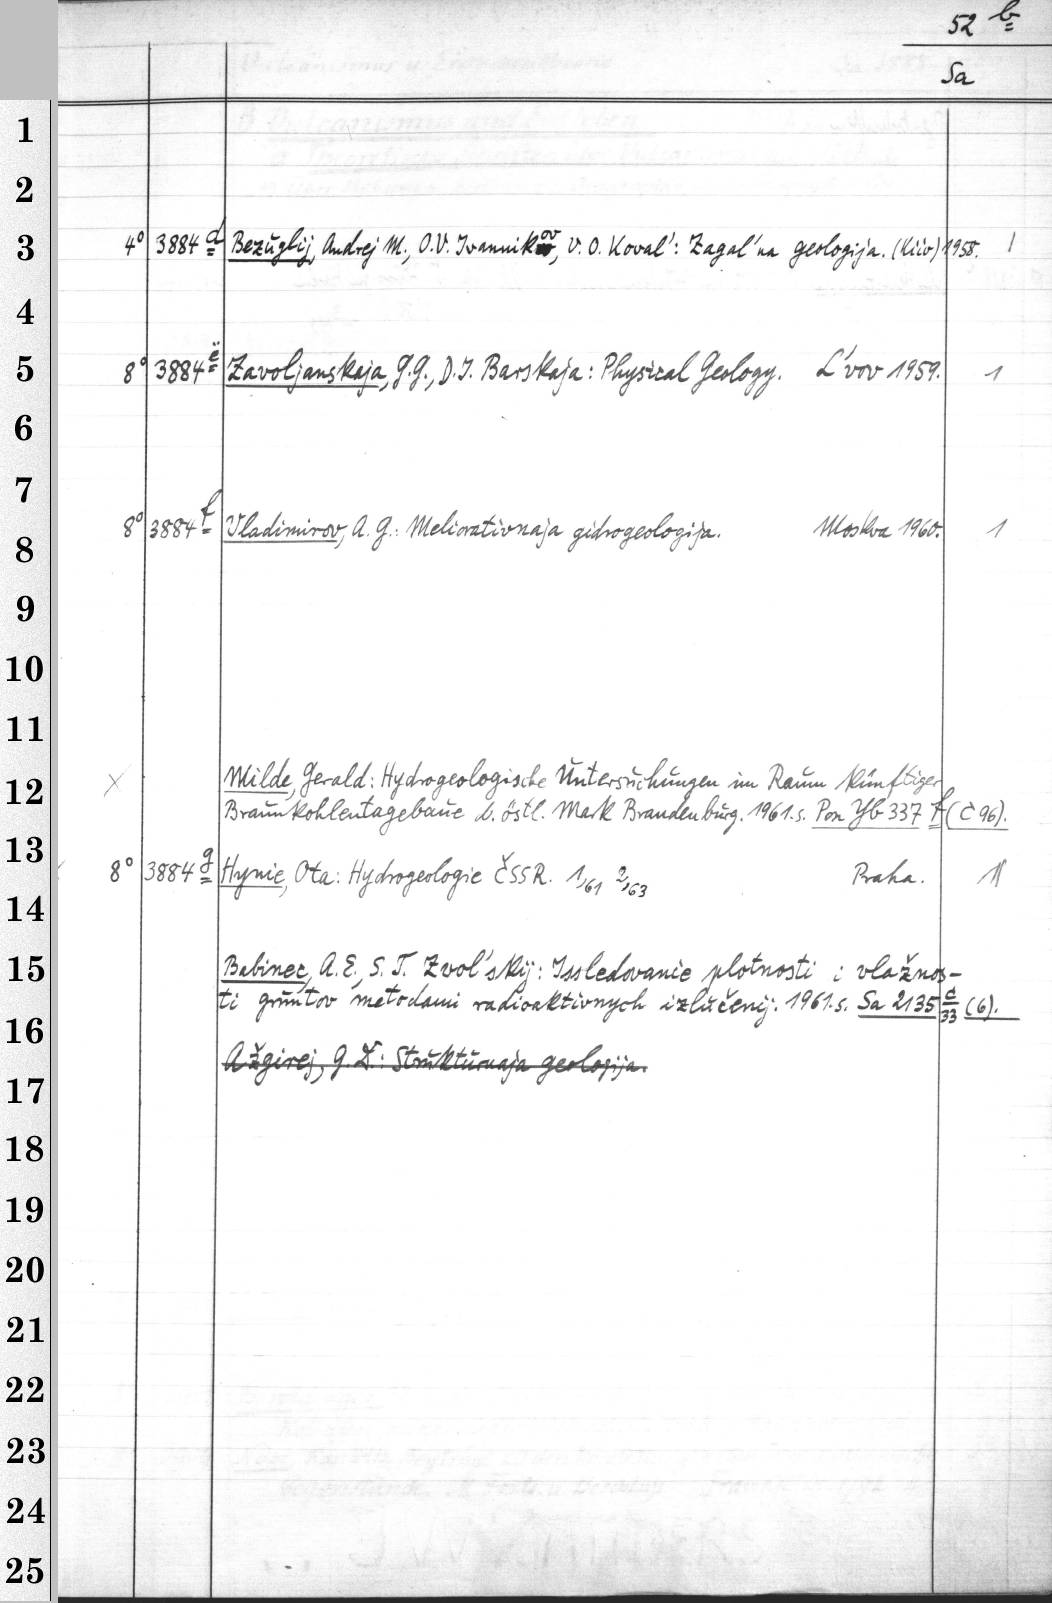 52 b
Sa
1
2
3 4° 3884 d Bezuglij, Andrej M., O.V. Ivannikov, V. O. Koval': Zagal'na geologija. (Kiiv) 1958. 1
4
5 8° 3884 ë Zavoljanskaja, G.G., D.I. Barskaja: Physical Geology. L'vov 1959. 1
6
7
8 8° 3884 f Vladimirov, A. G.: Meliorativnaja gidrogeologija. Moskva 1960. 1
9
10
11
12 Milde, Gerald: Hydrogeologische Untersuchungen im Raum künftiger
Braunkohlentagebaue d. östl. Mark Brandenburg. 1961. s. Pon Yb 337 f (C 96).
13 8° 3884 g Hynie, Ota: Hydrogeologie ČSSR. 1,61 2,63 Praha. 1
14
15 Babinec, A. E., S. T. Zvol'skij: Issledovanie plotnosti i vlažnos-
ti gruntov metodami radioaktivnych izlučenij. 1961. s. Sa 2135 d/33 (6).
16
Ažgirej, G. D.: Strukturnaja geologija.
17
18
19
20
21
22
23
24
25